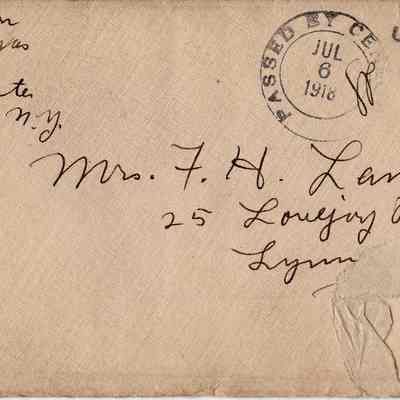 N.Y.
PASSED BY CE
JUL
6
1918
Mrs. F. H. Lan
25 Lovejoy
Lynn